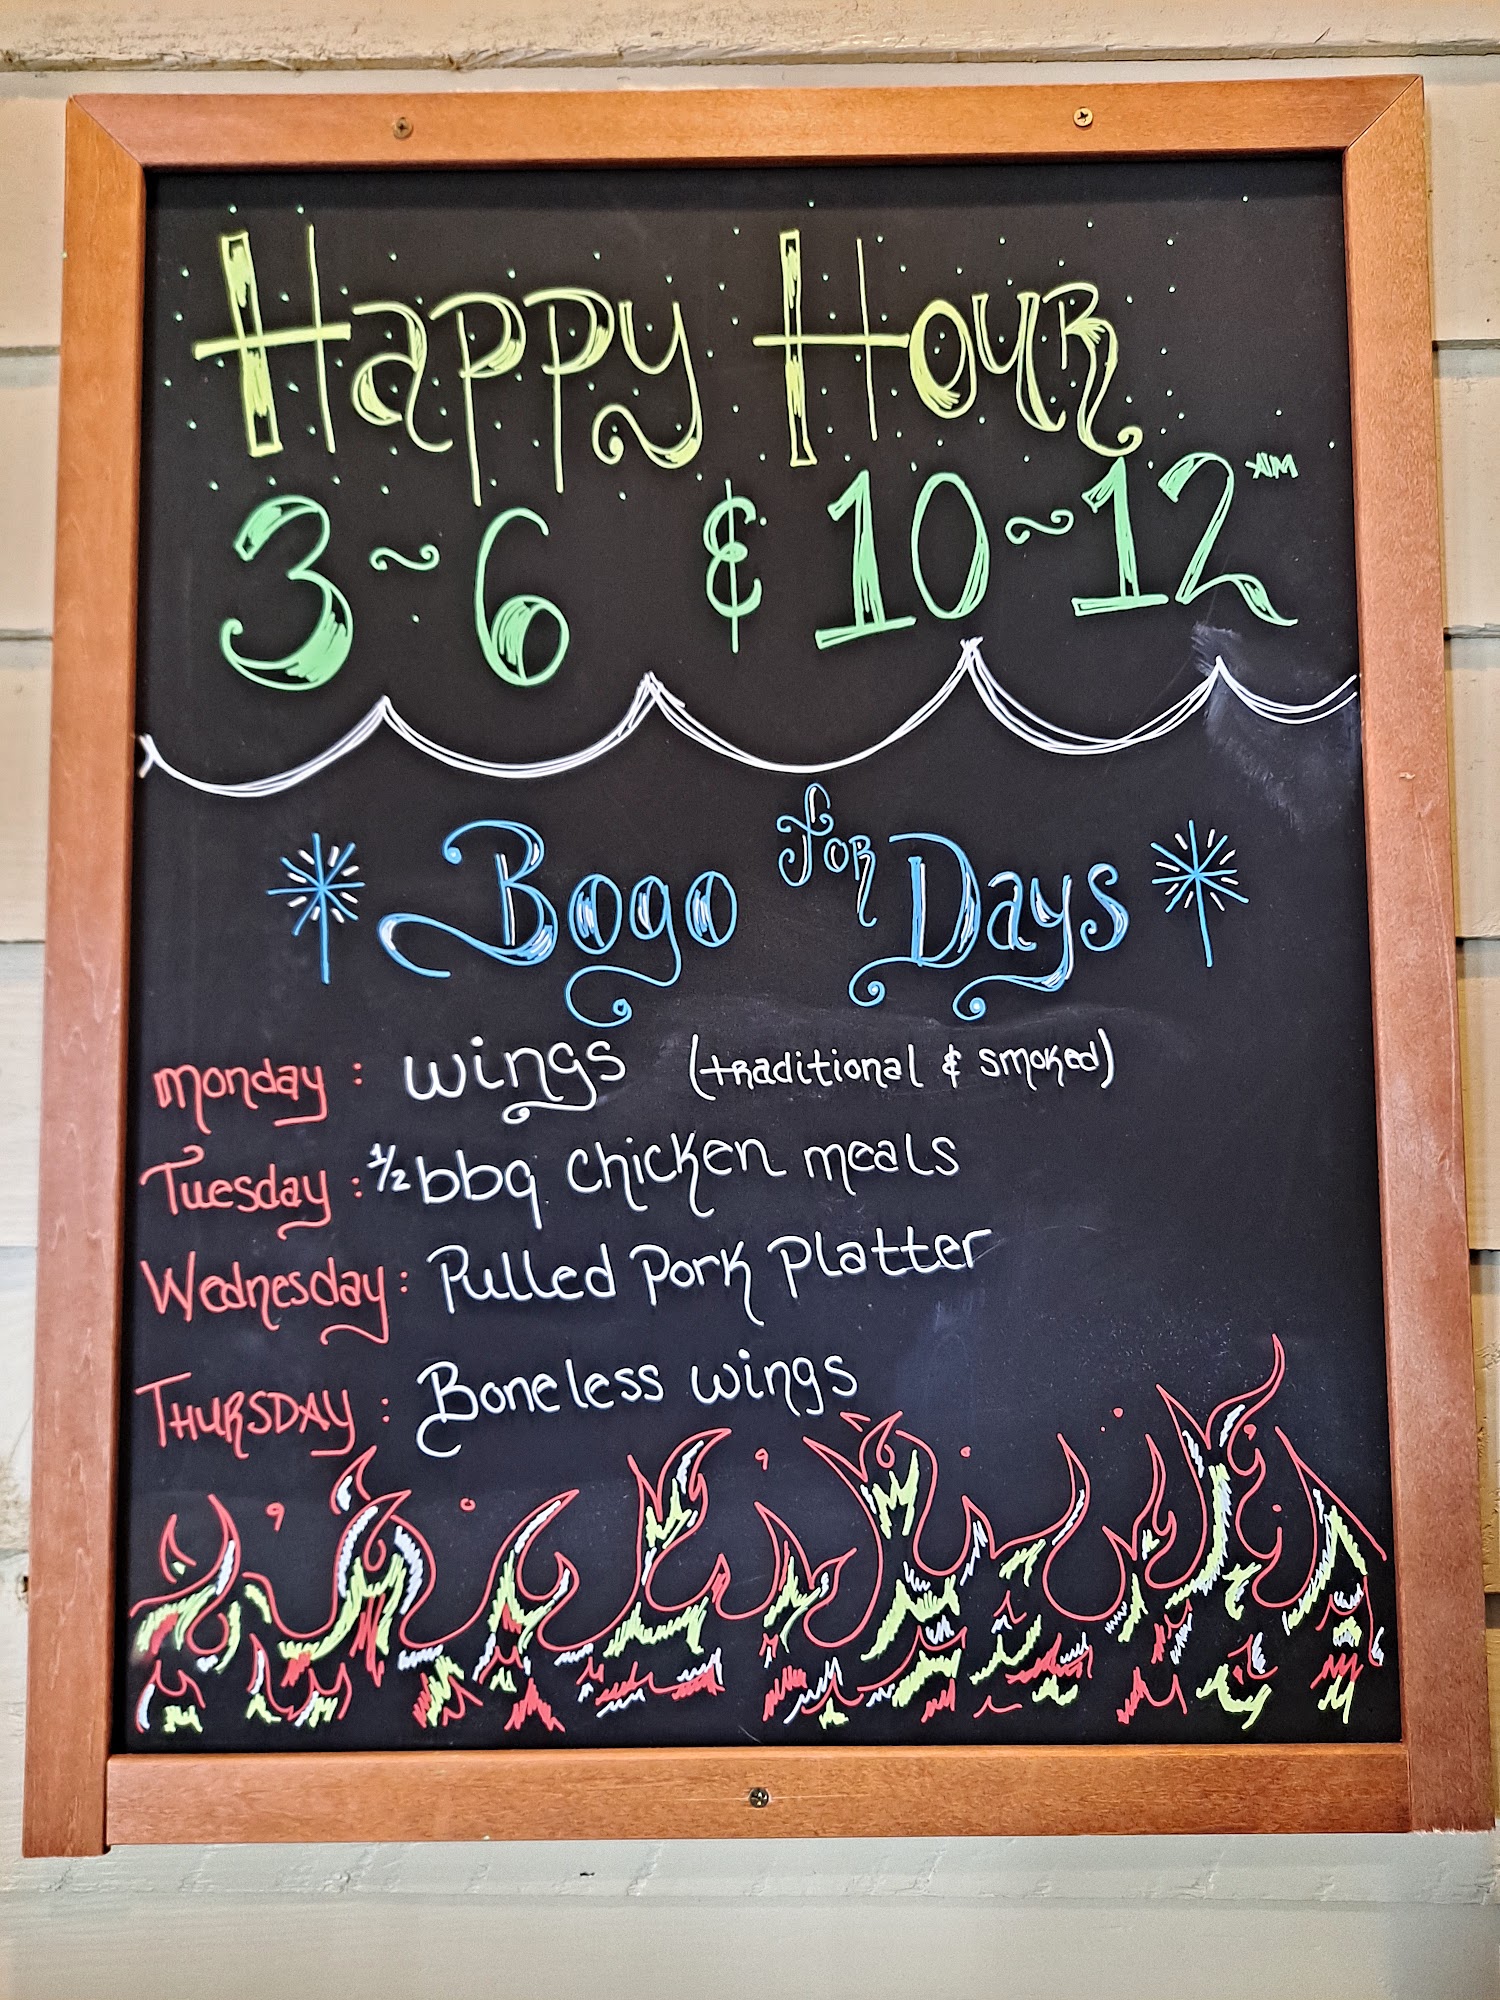 Happy Hour
3~6 & 10~12 AM
Bogo for Days
monday: wings (traditional & smoked)
Tuesday: 1/2 bbq chicken meals
Wednesday: Pulled Pork Platter
THURSDAY: Boneless wings